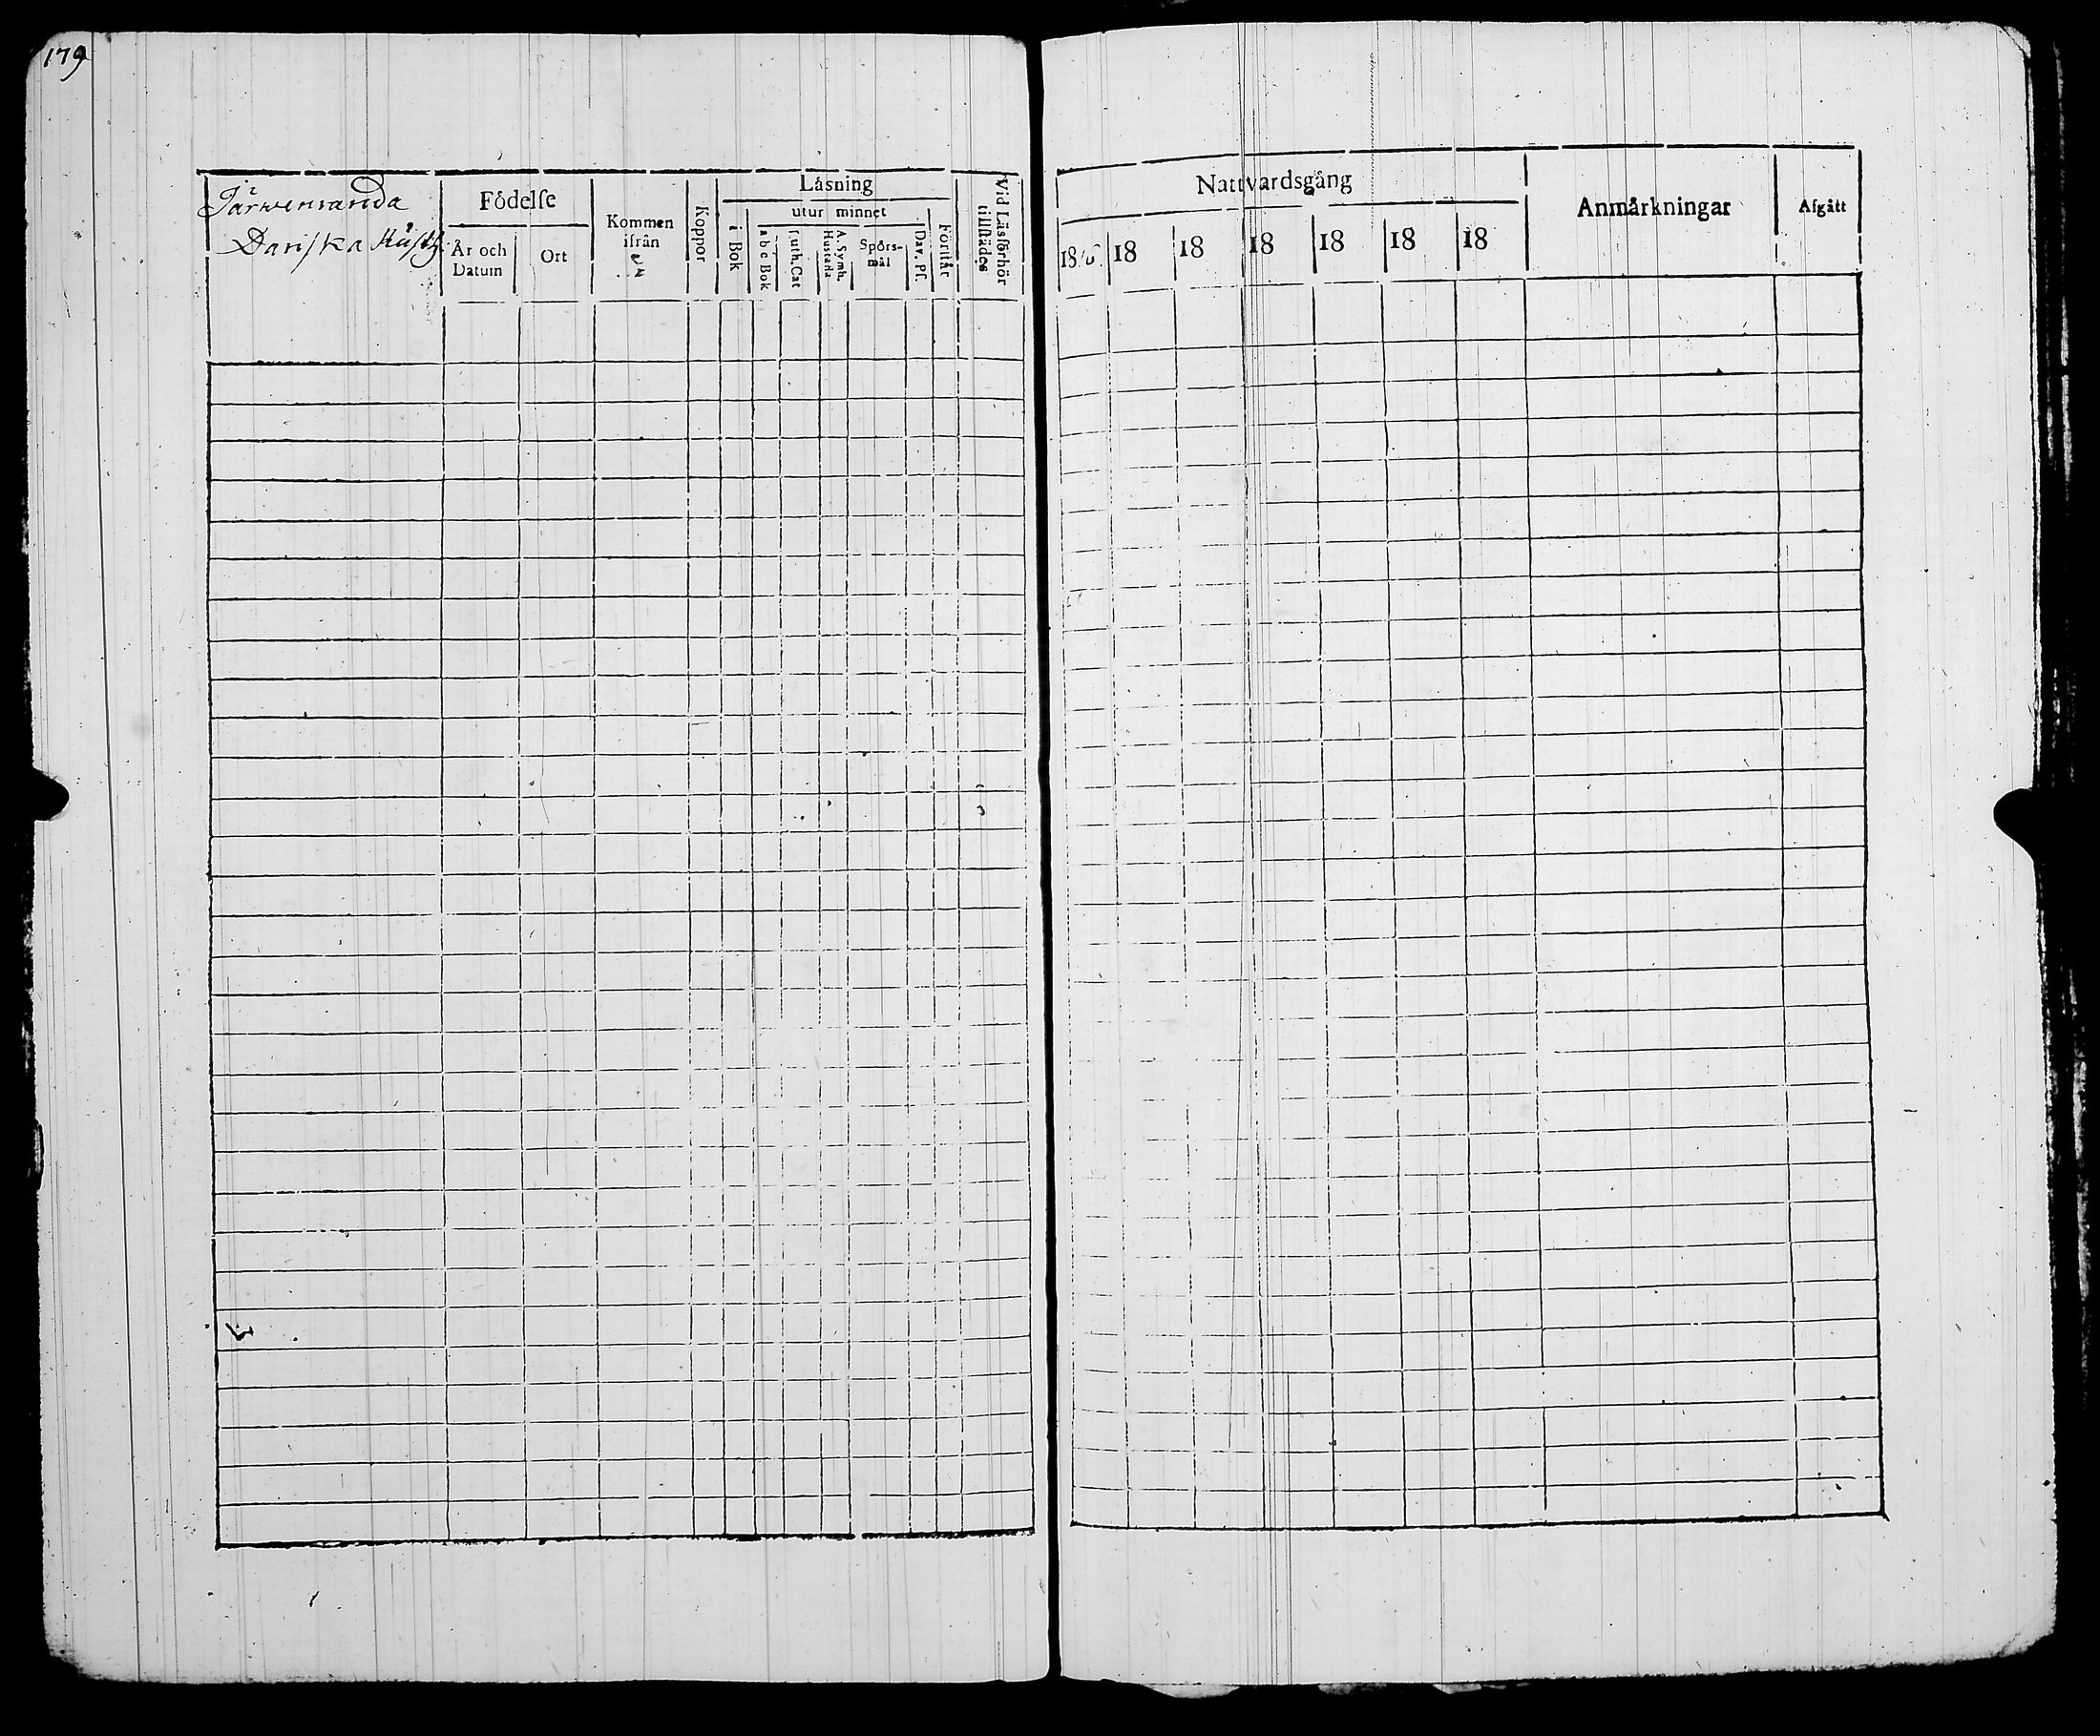 179
Järwenranda
Födelse
Kommen
ifrån
Koppor
Läsning
Vid Läsförhör
tillstädes
År och
Datum
Ort
i Bok
utur minnet
a b c Bok
Luth. Cat
A. Symb.
Hustafla
Spörs-
mål
Dav. Ps.
Förstår
Nattvardsgång
Anmärkningar
Afgått
18
18
18
18
18
18
18